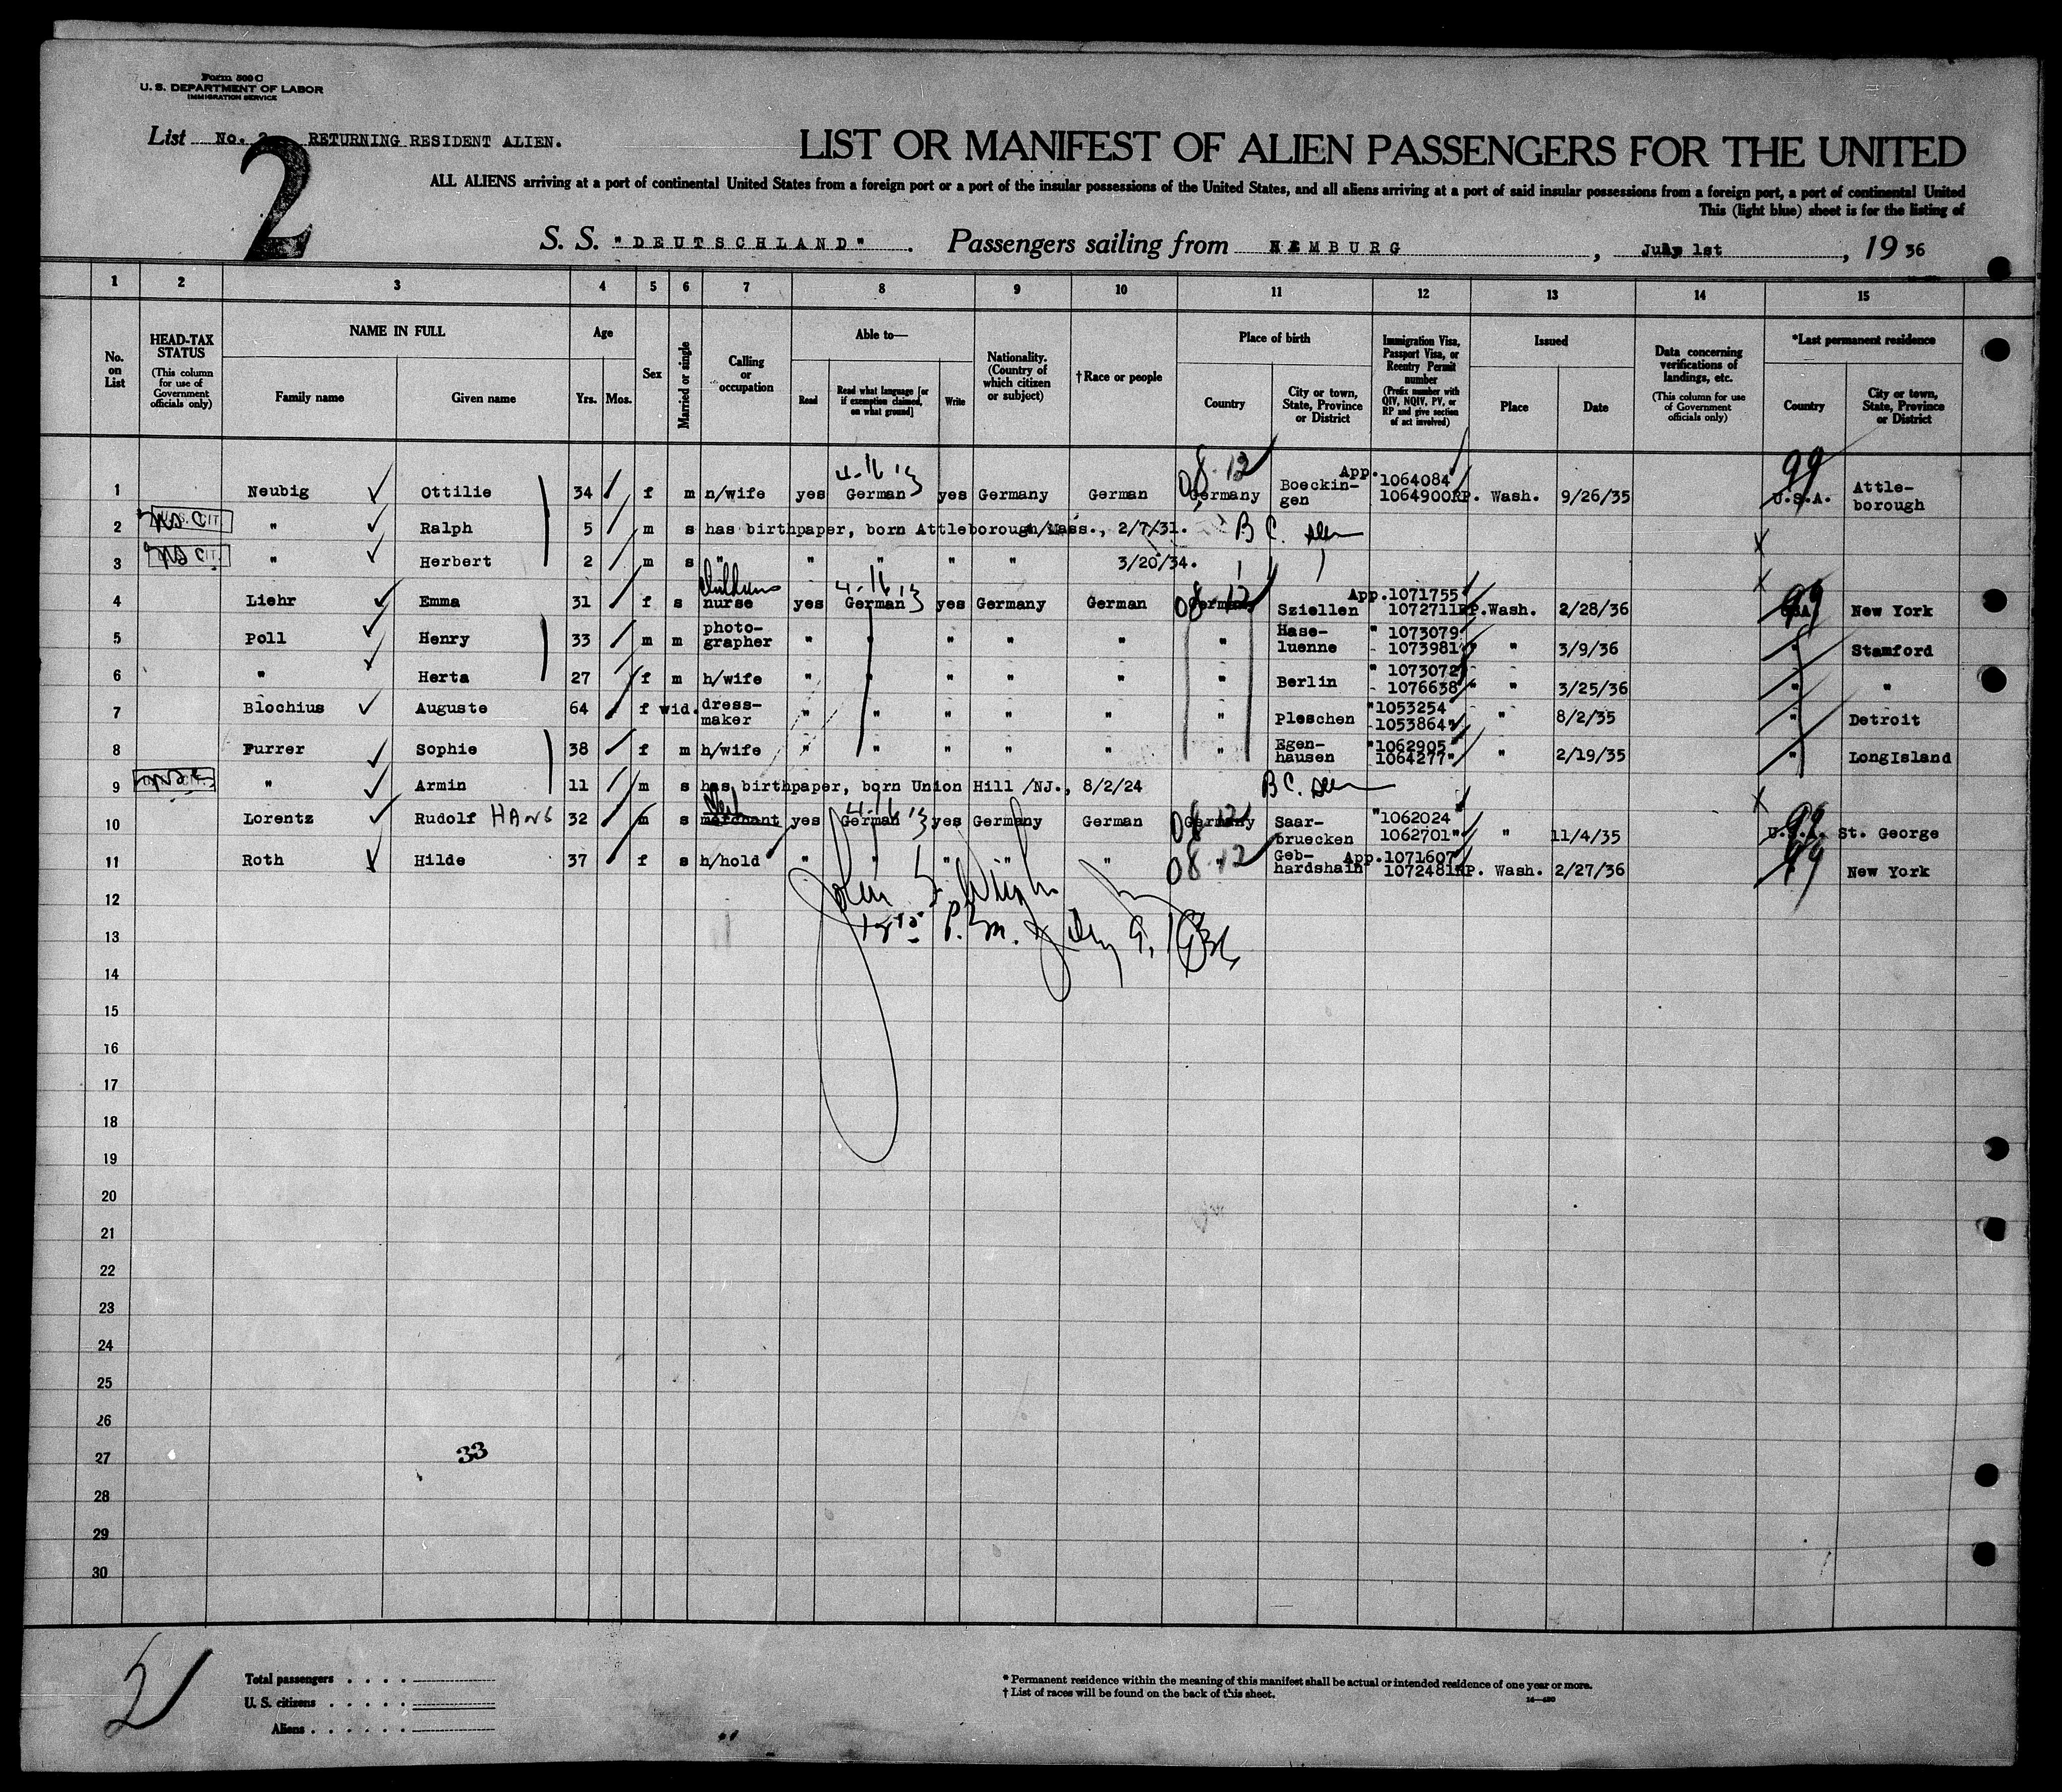 Form 500 C
U. S. DEPARTMENT OF LABOR
IMMIGRATION SERVICE
List No. 2 RETURNING RESIDENT ALIEN.
2
LIST OR MANIFEST OF ALIEN PASSENGERS FOR THE UNITED
ALL ALIENS arriving at a port of continental United States from a foreign port or a port of the insular possessions of the United States, and all aliens arriving at a port of said insular possessions from a foreign port, a port of continental United
This (light blue) sheet is for the listing of
S. S. "DEUTSCHLAND" . Passengers sailing from HAMBURG , July 1st , 19 36
1 2 3 4 5 6 7 8 9 10 11 12 13 14 15
No. on List
HEAD-TAX STATUS (This column for use of Government officials only)
NAME IN FULL
Family name Given name
Age
Yrs. Mos.
Sex
Married or single
Calling or occupation
Able to—
Read Read what language [or if exemption claimed, on what ground] Write
Nationality. (Country of which citizen or subject)
†Race or people
Place of birth
Country City or town, State, Province or District
Immigration Visa, Passport Visa, or Reentry Permit number (Prefix number with QIV, NQIV, PV, or RP and give section of act involved)
Issued
Place Date
Data concerning verifications of landings, etc. (This column for use of Government officials only)
*Last permanent residence
Country City or town, State, Province or District
1 Neubig Ottilie 34 f m n/wife yes German yes Germany German 08-12 Germany Boeckin-gen App. 1064084 1064900RP. Wash. 9/26/35 99 U.S.A. Attle-borough
2 US CIT " Ralph 5 m s has birthpaper, born Attleborough/Mass., 2/7/31. B C. seen
3 US CIT " Herbert 2 m s " " " " 3/20/34.
4 Liehr Emma 31 f s childrens nurse yes German yes Germany German 08-12 Germany Sziellen App.1071755 1072711RP.Wash. 2/28/36 99 USA New York
5 Poll Henry 33 m m photo-grapher " " " " " " Hase-luenne " 1073079 - 1073981" " 3/9/36 " Stamford
6 " Herta 27 f m h/wife " " " " " " Berlin " 1073072 - 1076638" " 3/25/36 " "
7 Blochius Auguste 64 f wid. dress-maker " " " " " " Pleschen "1053254 1053864" " 8/2/35 " Detroit
8 Furrer Sophie 38 f m h/wife " " " " " " Egen-hausen "1062905 1064277" " 2/19/35 " LongIsland
9 " Armin 11 m s has birthpaper, born Union Hill /NJ., 8/2/24 B C. seen
10 Lorentz Rudolf HANS 32 m s merchant yes German yes Germany German 08-12 Germany Saar-bruecken "1062024 1062701" " 11/4/35 99 U.S.A. St. George
11 Roth Hilde 37 f s h/hold " " " " " 08-12 " Geb-hardshain App.1071607 1072481RP. Wash. 2/27/36 99 New York
12
P.M. July 9, 1936
13
14
15
16
17
18
19
20
21
22
23
24
25
26
27
33
28
29
30
2
Total passengers
U. S. citizens
Aliens
* Permanent residence within the meaning of this manifest shall be actual or intended residence of one year or more.
† List of races will be found on the back of this sheet.
14—480